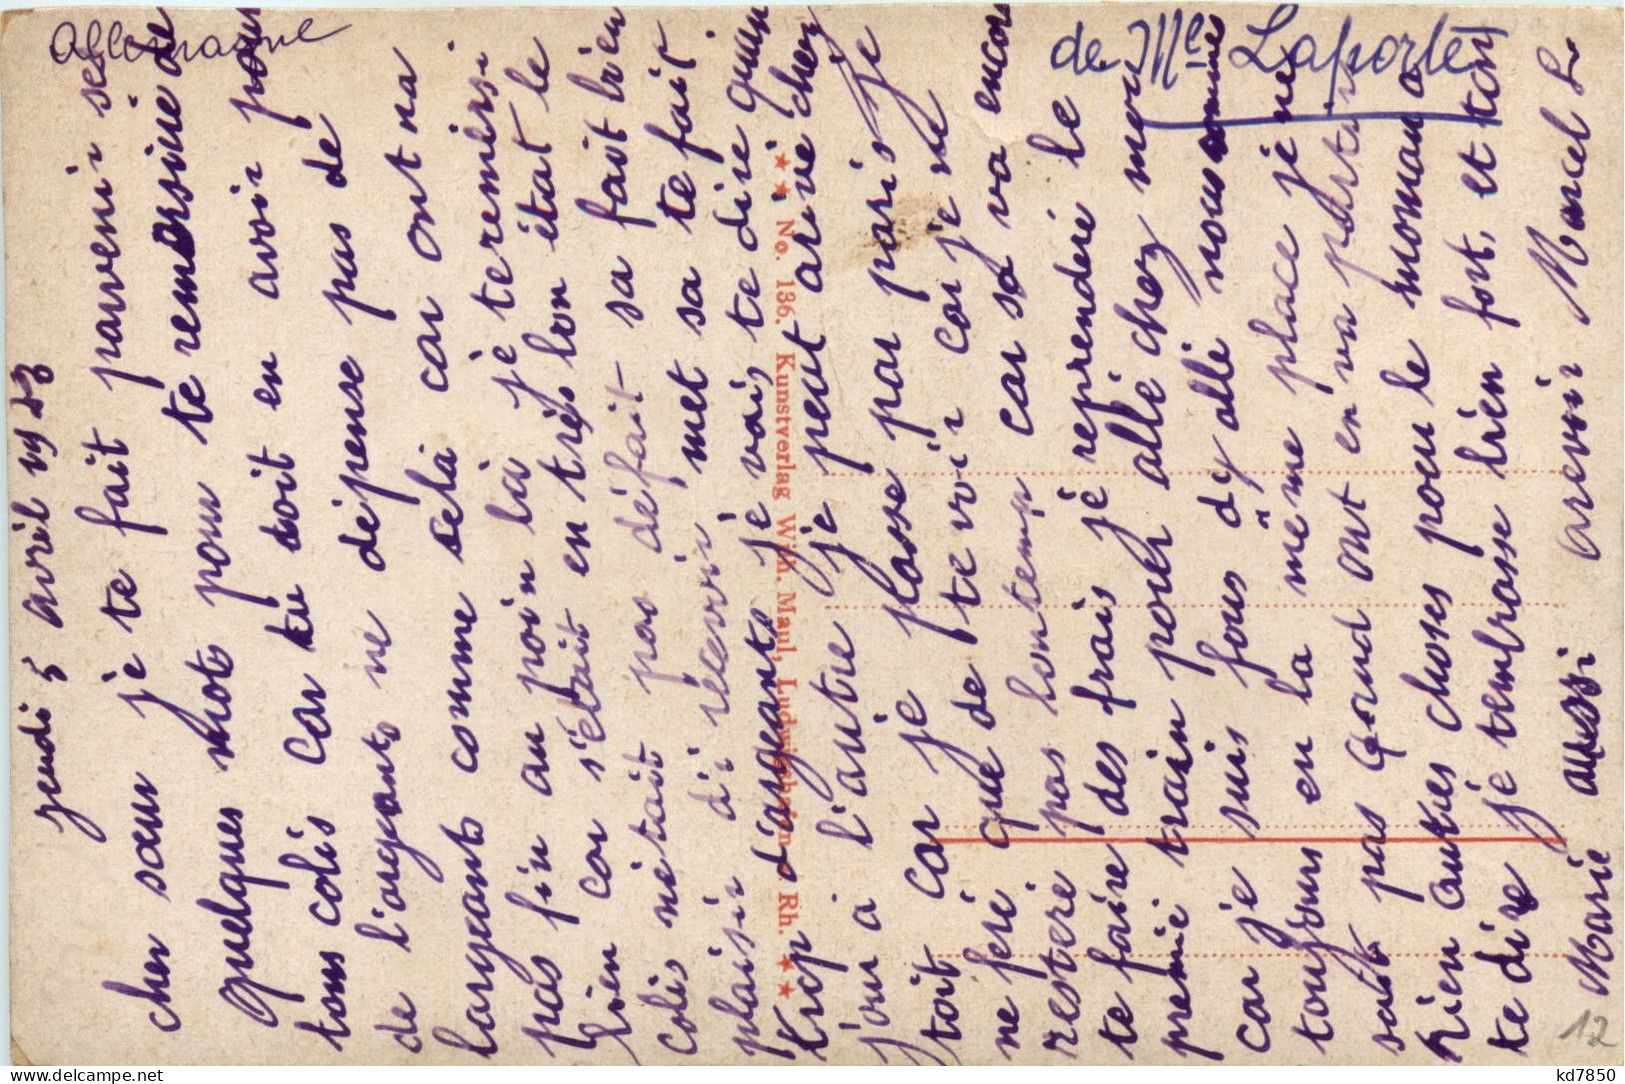 Allemagne
de Mle Laporte
jeudi 5 avril 1923
cher sœur je te fait parvenir ses
quelques mot pour te remersiié de
tous colis car tu doit en avoir pour
de l'argants ne dépense pas de
largeants comme sela car ont na
pas fin au poin là je te remersi
bien car s'était en très bon état le
colis nétait pas défait sa fait bien
plaisir di récevoir, met sa te fait
trop d'argeants je vais te dire quun
jour a l'autre je peut arivé chez
toit car je passe par paris je
ne feri que de te voir cai je ne
resteré pas lontemp car sa va encore
te faire des frais jé reprenderé le
premié train pour allé chez mer
car je suis fous dy allé nous sommes
toujours en la même place je ne
sait pas quand ont en va partir
rien autres choses pour le moman a
te dire je tembrasse bien fort, et ton
Marie aussi arevoir Marcel L.
★★ No. 136. Kunstverlag Wilh. Maul, Ludwigshafen a. Rh. ★★
12
kd7850